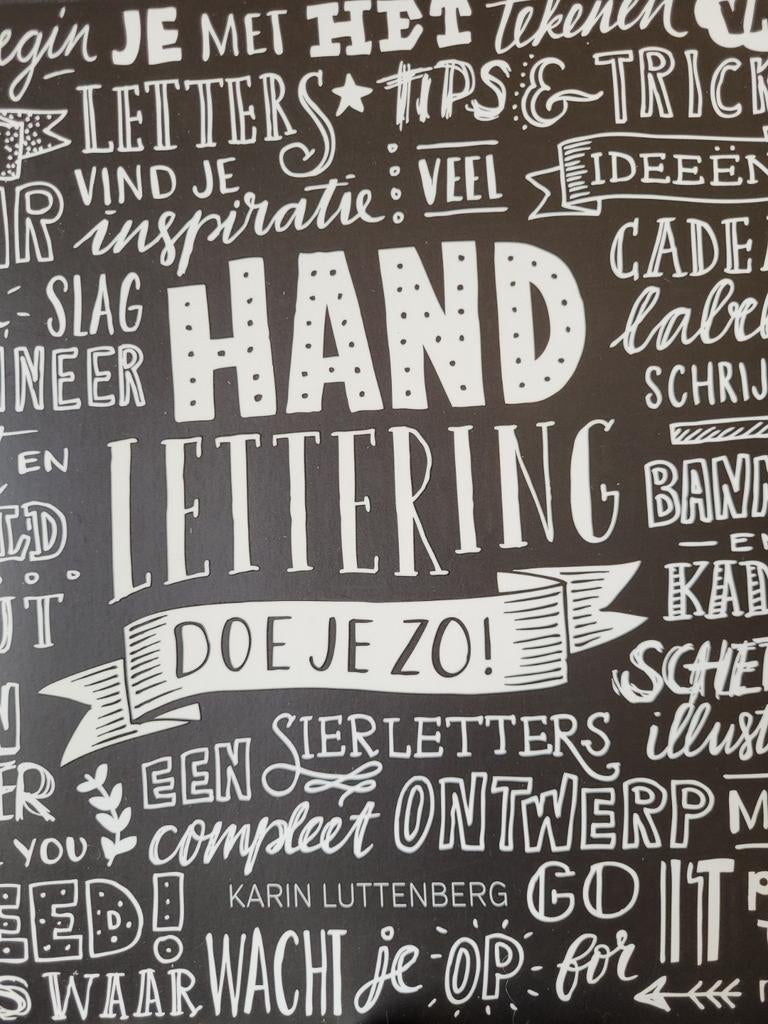 egin JE MET HET tekenen
LETTERS TIPS & TRICK
VIND JE VEEL IDEEËN
inspiratie
CADEA
SLAG HAND label
NEER SCHRIJ
EN LETTERING BANN
LD EN
JT KAD
DOE JE ZO! SCHET
EEN SIERLETTERS illust
ER compleet ONTWERP M
YOU
KARIN LUTTENBERG GO IT
EED!
S WAAR WACHT je OP for